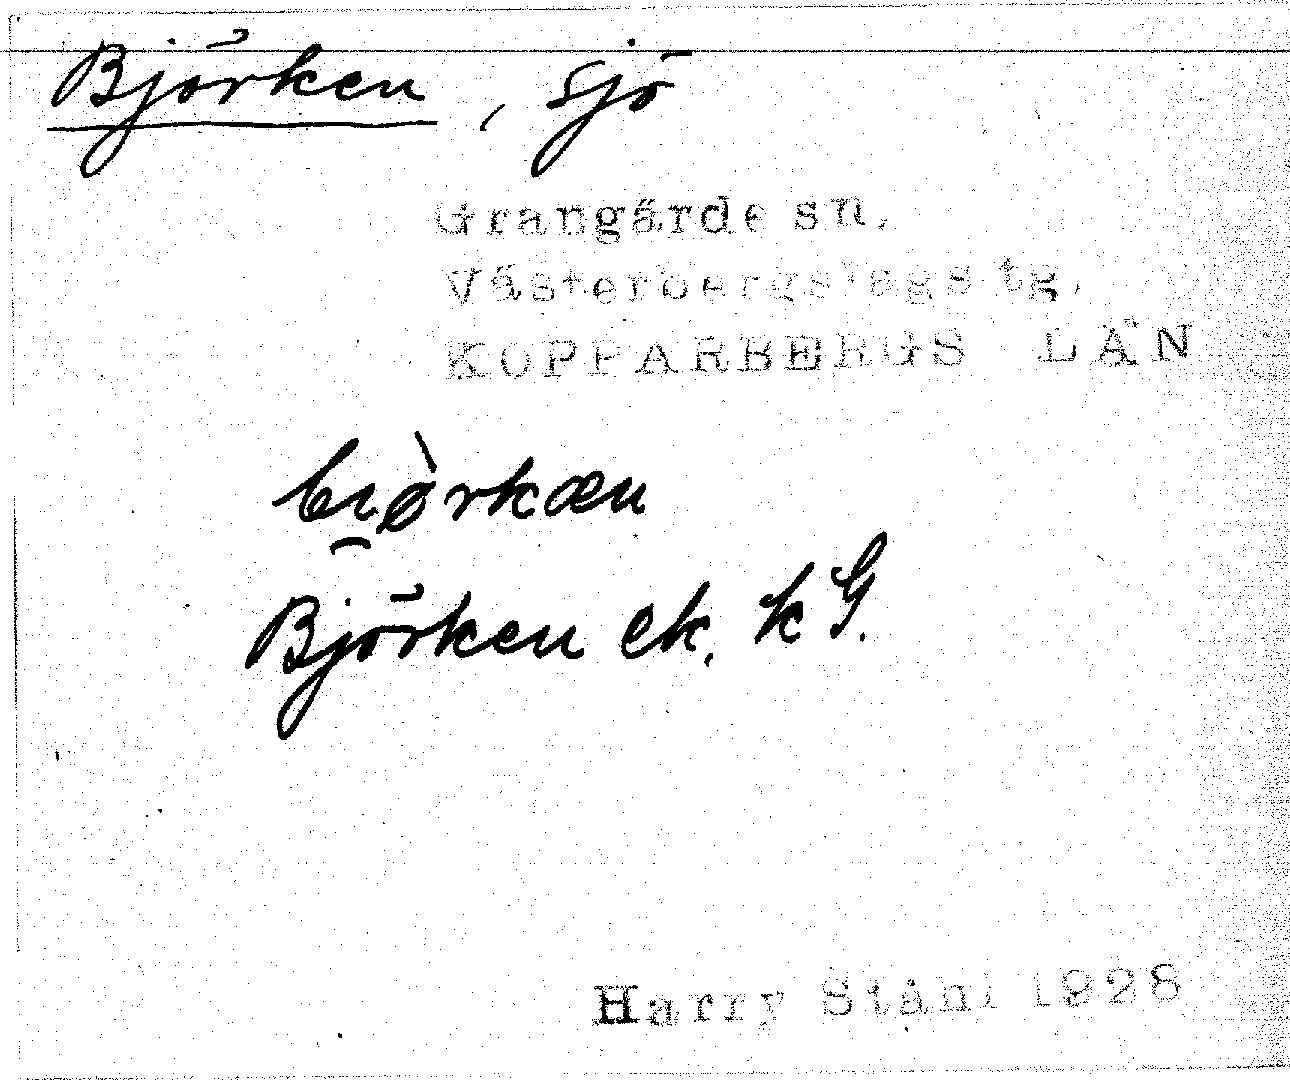 Björken, sjö
Grangärde sn.
Västerbergslags tg.
KOPPARBERGS LÄN
bi̯ø̀rkæn
Björken ek. k G.
Harry Ståhl 1928